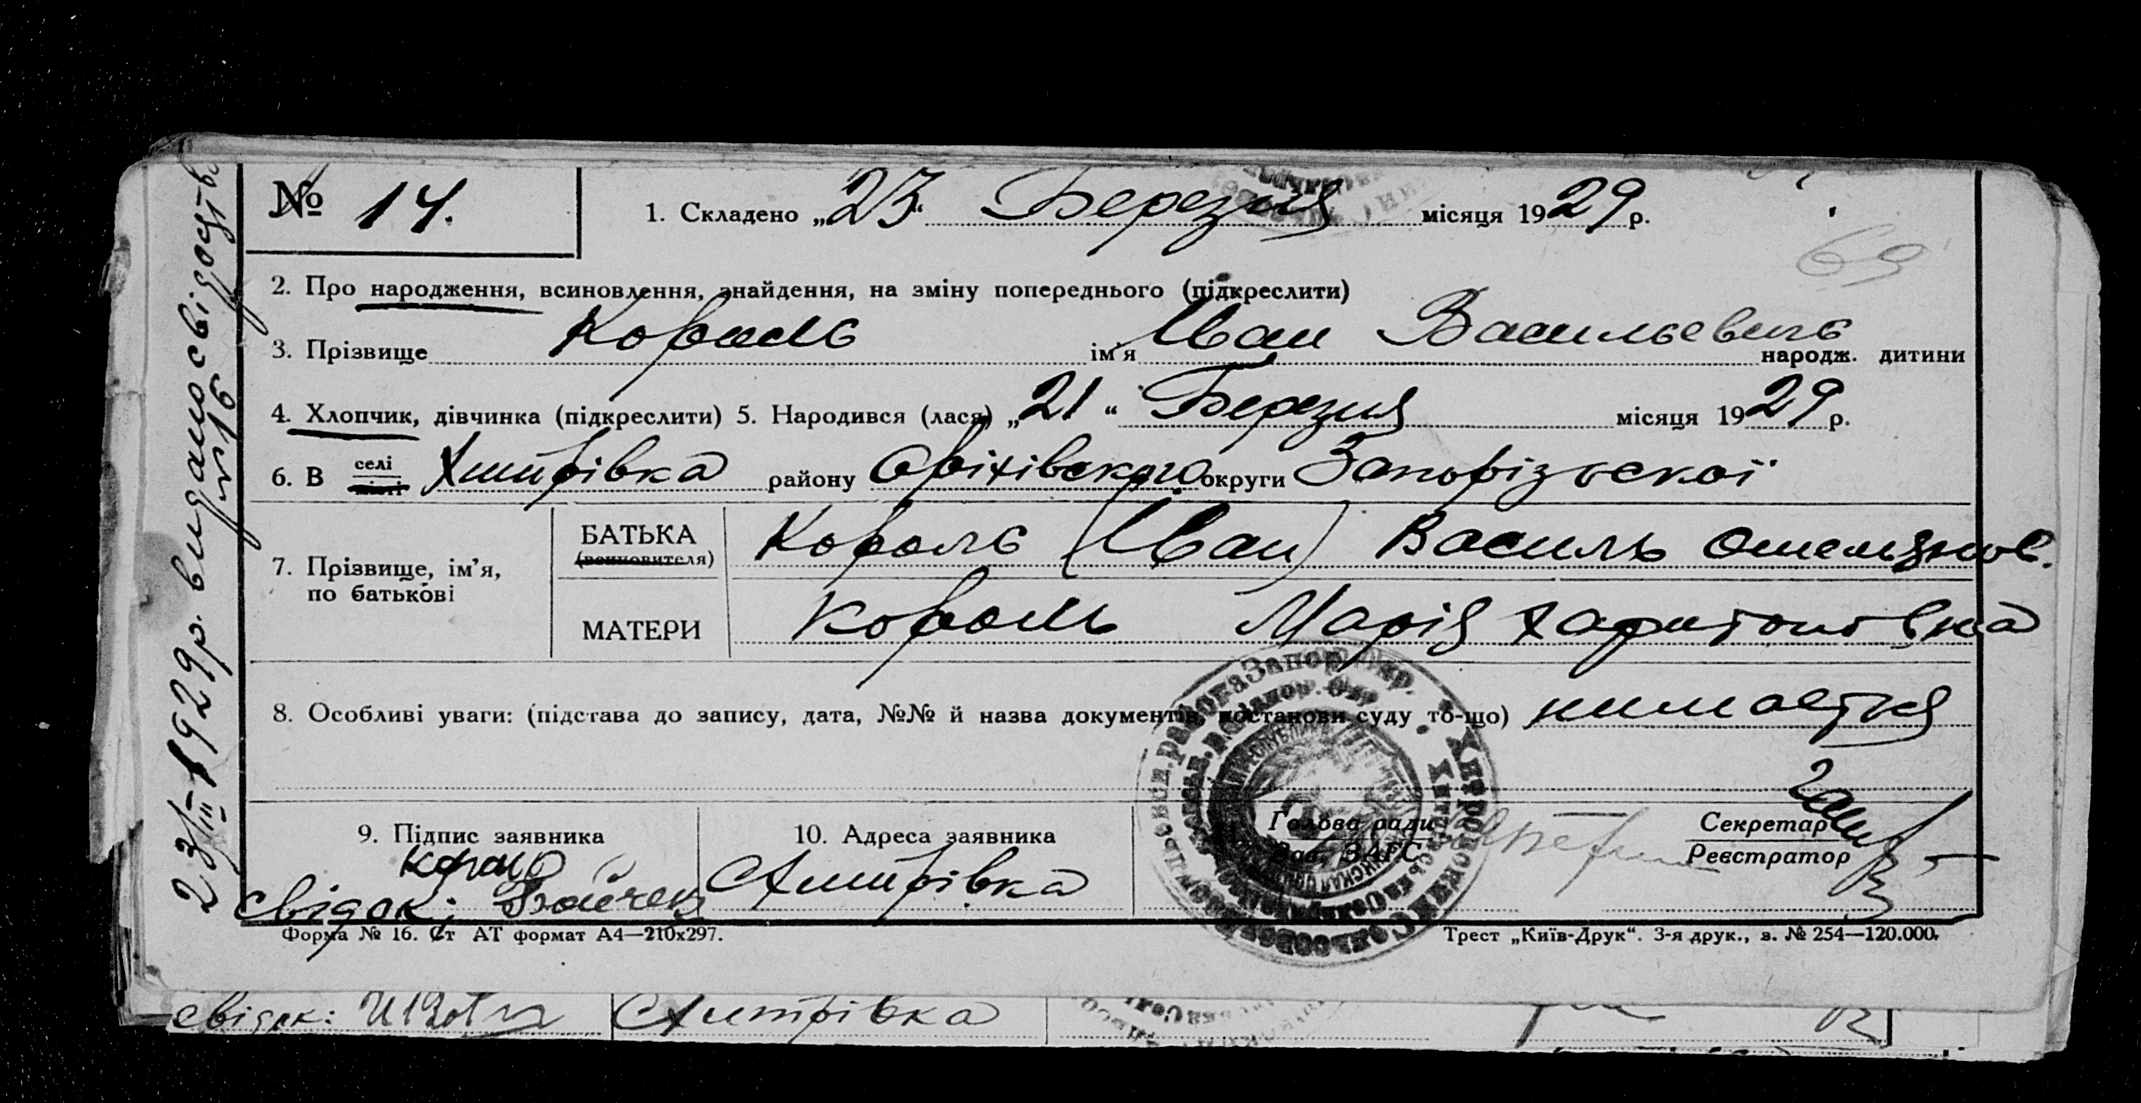 № 14.
1. Складено „23“ Березня місяця 1929 р.
69
2. Про народження, всиновлення, знайдення, на зміну попереднього (підкреслити)
3. Прізвище Король ім'я Іван Васильевичь народж. дитини
4. Хлопчик, дівчинка (підкреслити) 5. Народився (лася) „21“ Березня місяця 1929 р.
6. В селі Хитрівка району Оріхівского округи Запорізьскої
7. Прізвище, ім'я, по батькові
БАТЬКА (всиновителя) Король (Іван) Василь
МАТЕРИ Король Марія Харитоновна
8. Особливі уваги: (підстава до запису, дата, №№ й назва документів, постанови суду то-що)
9. Підпис заявника
10. Адреса заявника
Голова ради
Зав. ЗАГС
Секретар
Реєстратор
Король
свідок: Бойчен
Хитрівка
Форма № 16. Ст АТ формат А4—210х297.
Трест „Київ-Друк“. 3-я друк., з. № 254—120.000.
23/III—1929 р. видано свідоцтво
№ 16
свідок:
Хитрівка